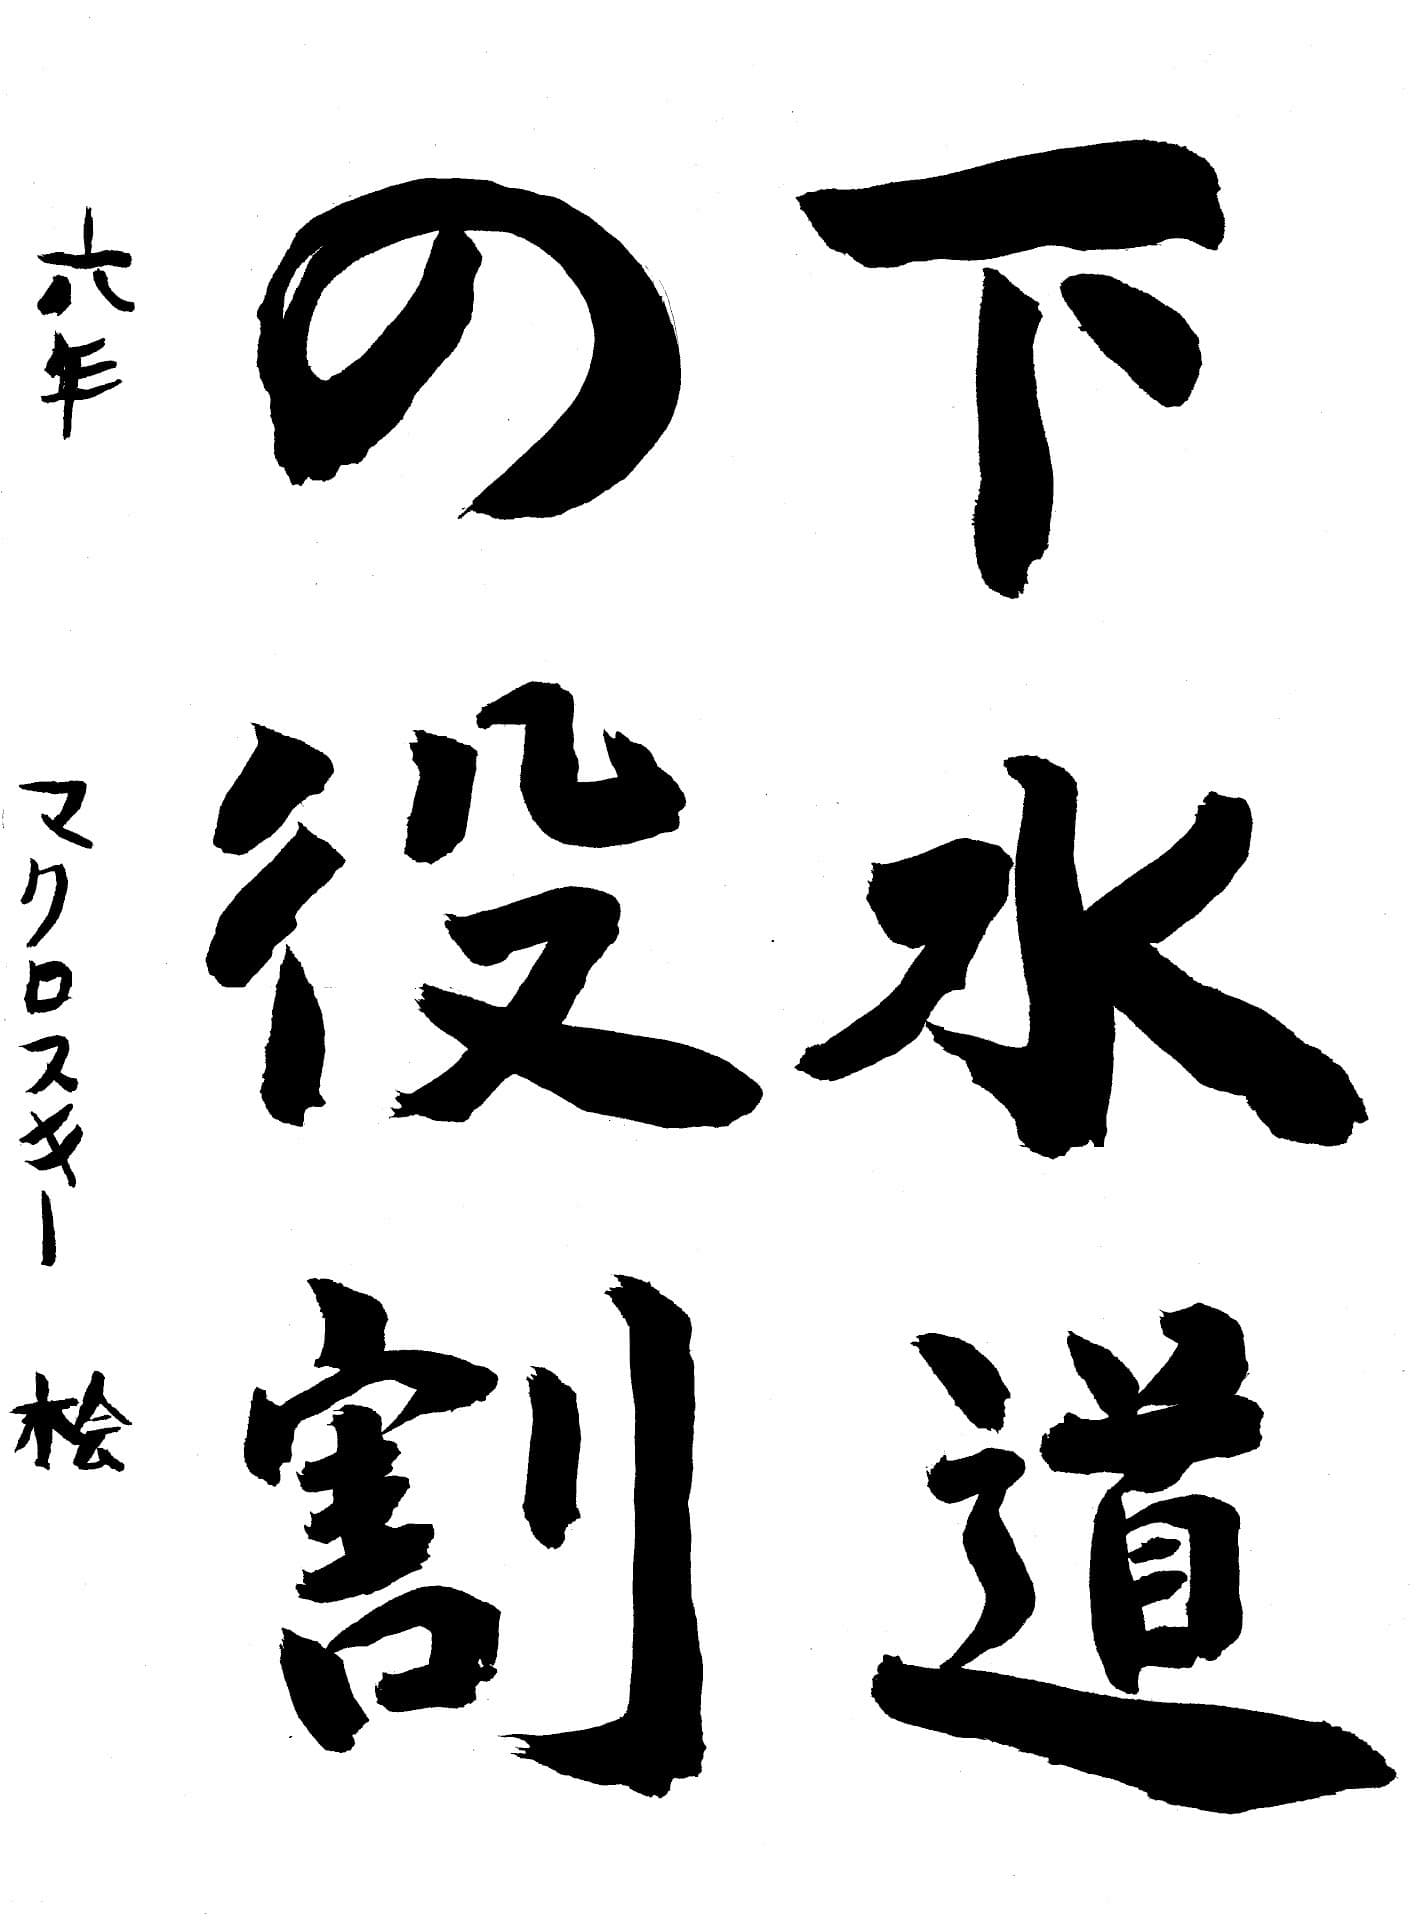 下水道
の役割
六年 マクロスキー 桧